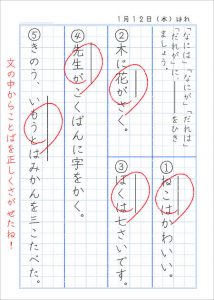 1月12日(水)はれ
「なには」「なにが」「だれは」
「だれが」に、――をひき
ましょう。
①ねこはかわいい。
②木に花がさく。
③ぼくは七さいです。
④先生がこくばんに字をかく。
⑤きのう、いもうとはみかんを三こたべた。
文の中からことばを正しくさがせたね!